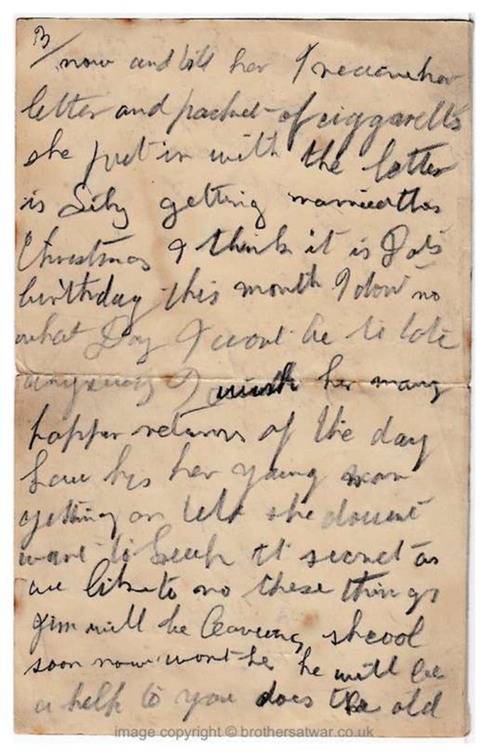 3/
now and tell her I received her
letter and packet of ciggaretts
she put in with the letter
is Lily getting married this
Christmas I think it is Dot's
birthday this month I don't no
what Day I wont be to late
anyway I wish her many
happer returns of the day
how his her young man
getting on tell she dousent
want to keep it secret as
we like to no these things
Jim will be leaveing shcool
soon now wont he he will be
a help to you does the old
image copyright © brothersatwar.co.uk